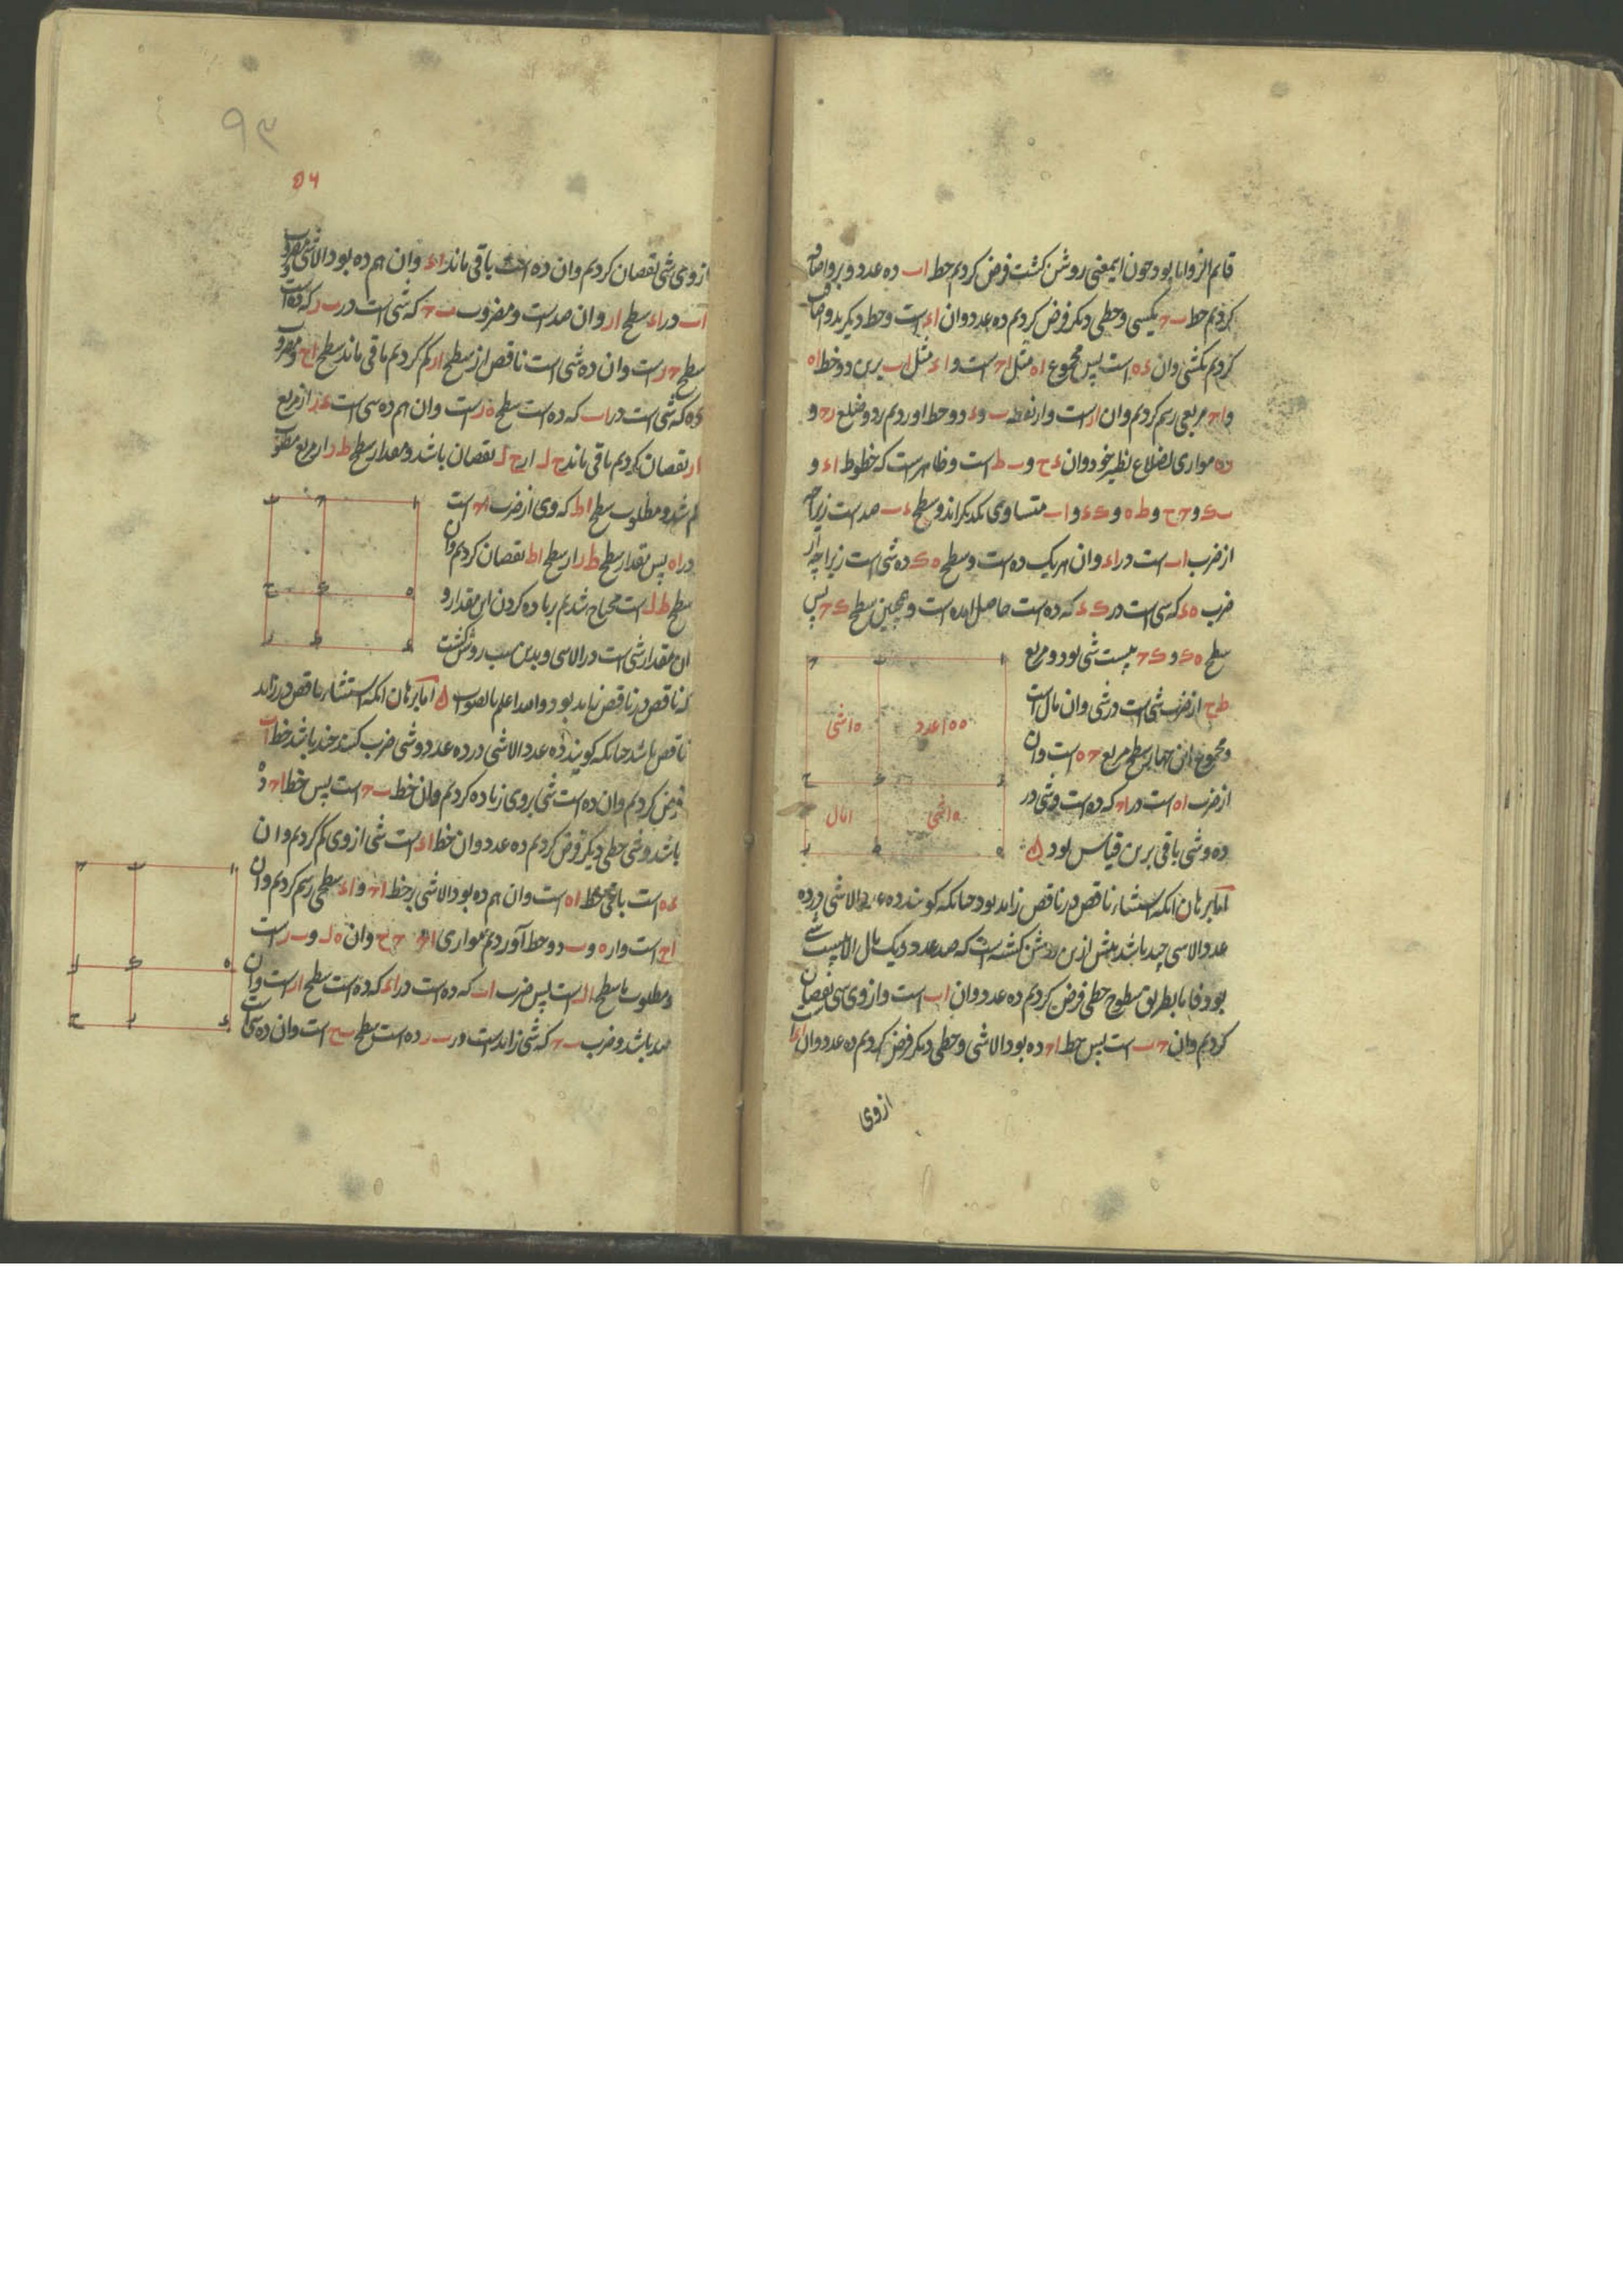 قایم الزوایا بود چون ایمعنی روشن کشت فرض کردیم خط اب ده عدد و برو اضافه
کردیم خط ب ح یکشی و خطی دیکر فرض کردیم ده عدد وان اء است و خط دیکر بدو اضافه
کردیم یکشی وان ء ه است پس مجموع اه مثل اح است و اء مثل اب برین دو خط اه
و اح مربعی رسم کردیم وان ار است و از نقطه ب و ء دو خط اوردیم بر دو ضلع رح و
ره موازی اضلاع نظیر خود وان ء ح و ب ط است و ظاهرست که خطوط اء و
ب ک و ح ح و ط ه و ک ء و اب متساوی یکدیکراند و سطح ء ب صد است زیراچه
از ضرب اب است در اء وان هر یک ده است و سطح ه ک ده شی است زیراچه از
ضرب ه ء که شی است در ک ء که ده است حاصل امده است و همچنین سطح ک ح پس
سطح ه ک و ک ح بیست شی بود و مربع
ط ح از ضرب شی است در شی وان مال است
و مجموع این چهار سطح مربع ح ه است وان
از ضرب اه است در اح که ده است و شی در
ده و شی باقی برین قیاس بود
۱۰۰ عدد
۱۰ شی
۱۰ شی
۱ مال
اما برهان انکه استثناء ناقص در ناقص زاید بود چنانکه کویند ده عدد الا شی در ده
عدد الا شی چند باشد پیش ازین روشن کشته است که صد عدد و یک مال الا بیست شی
بود فاما بطریق سطوح خطی فرض کردیم ده عدد وان اب است و از وی شی نقصان
کردیم وان ح ب است پس خط اح ده بود الا شی و خطی دیکر فرض کردیم ده عدد وان اء
از وی
۹۳
۵۶
از وی شی نقصان کردیم وان ده است باقی ماند اء وان هم ده بود الا شی مضروب
اب در اء سطح ار وان صد است و مضروب ب ح که شی است در ب ر که ده است
سطح ح ر است وان ده شی است ناقص از سطح ار کم کردیم باقی ماند سطح اح و مضروب
ء ه که شی است در اب که ده است سطح ه ر است وان هم ده شی است ء ر از مربع
ار نقصان کردیم باقی ماند ح ل از ح ل نقصان باشد و مقدار سطح ط ر از مربع مطلوب
کم شد و مطلوب سطح اط که وی از ضرب اح است
در اه پس بقدار سطح ط ر از سطح اط نقصان کردیم وان
سطح ط ل است محتاج شدیم بزیاده کردن این مقدار و
ان مقدار شی است در الا شی و بدین سبب روشن کشت
که ناقص در ناقص زاید بود والله اعلم بالصواب اما برهان انکه استثناء ناقص در زاید
ناقص باشد چنانکه کویند ده عدد الا شی در ده عدد و شی ضرب کنند چند باشد خط اب
فرض کردیم وان ده است شی بروی زیاده کردیم وان خط ب ح است پس خط اح ده
باشد و شی خطی دیکر فرض کردیم ده عدد وان خط اء است شی از وی کم کردیم وان
ء ه است باقی خط اه است وان هم ده بود الا شی بر خط اح و اء سطحی رسم کردیم وان
اح است و از ه و ب دو خط آوردیم موازی اح ح ح وان ه ل و ب ر است
و مطلوب ما سطح ال است پس ضرب اب که ده است در اء که ده است سطح ار است وان
صد باشد و ضرب ب ح که شی زاید است در ب ر ده است سطح ب ح است وان ده شی است